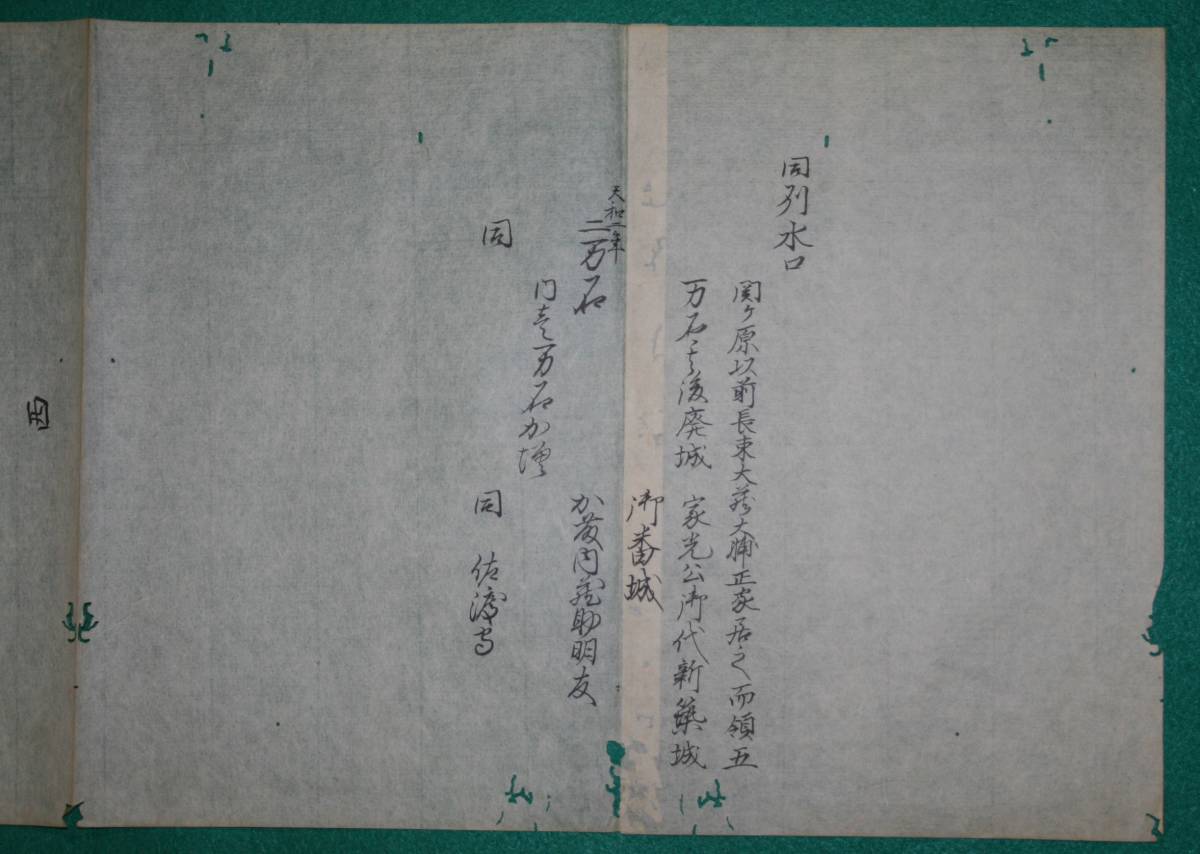 同列水口
関ヶ原以前長束大蔵大輔正家居之而領五
万石其後廃城 家光公御代新築城
御番城
天和二年
二万石 加藤内蔵助明友
内壱万石加増
同 同 佐渡守
西